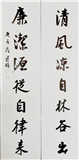 清風凉自林谷出
廉潔源從自律來